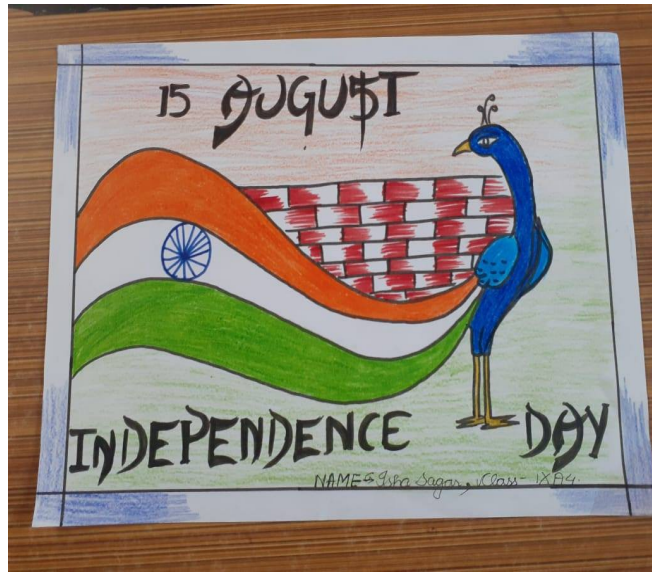 15 AUGUST
INDEPENDENCE DAY
NAME- Isha Sagar, Class- IXA4.